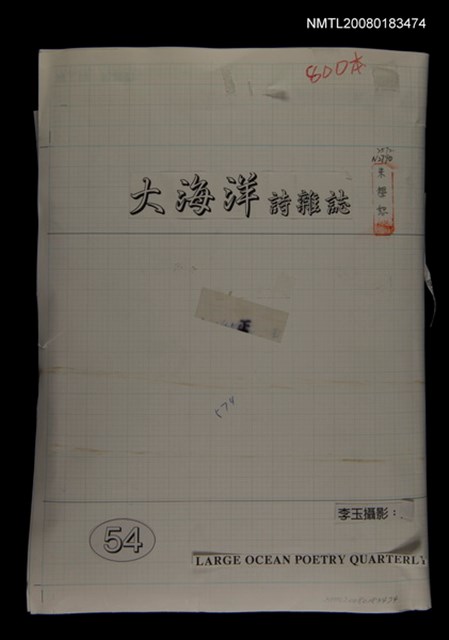 NMTL20080183474
800本
大海洋詩雜誌
正
574
李玉攝影：
54
LARGE OCEAN POETRY QUARTERLY